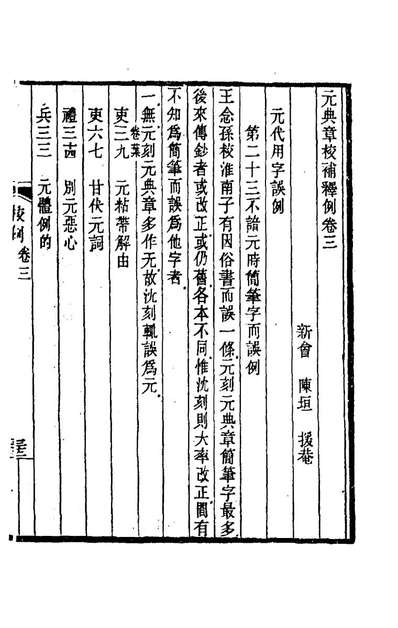 元典章校補釋例卷三
新會 陳垣 援菴
元代用字誤例
第二十三不諳元時簡筆字而誤例
王念孫校淮南子有因俗書而誤一條元刻元典章簡筆字最多
後來傳鈔者或改正或仍舊各本不同惟沈刻則大率改正間有
不知爲簡筆而誤爲他字者
一無元刻元典章多作无故沈刻輒誤爲元
卷葉
吏三九 元粘帶解由
吏六七 甘伏元詞
禮三十四 別元惡心
兵三三 元體例的
校例卷三